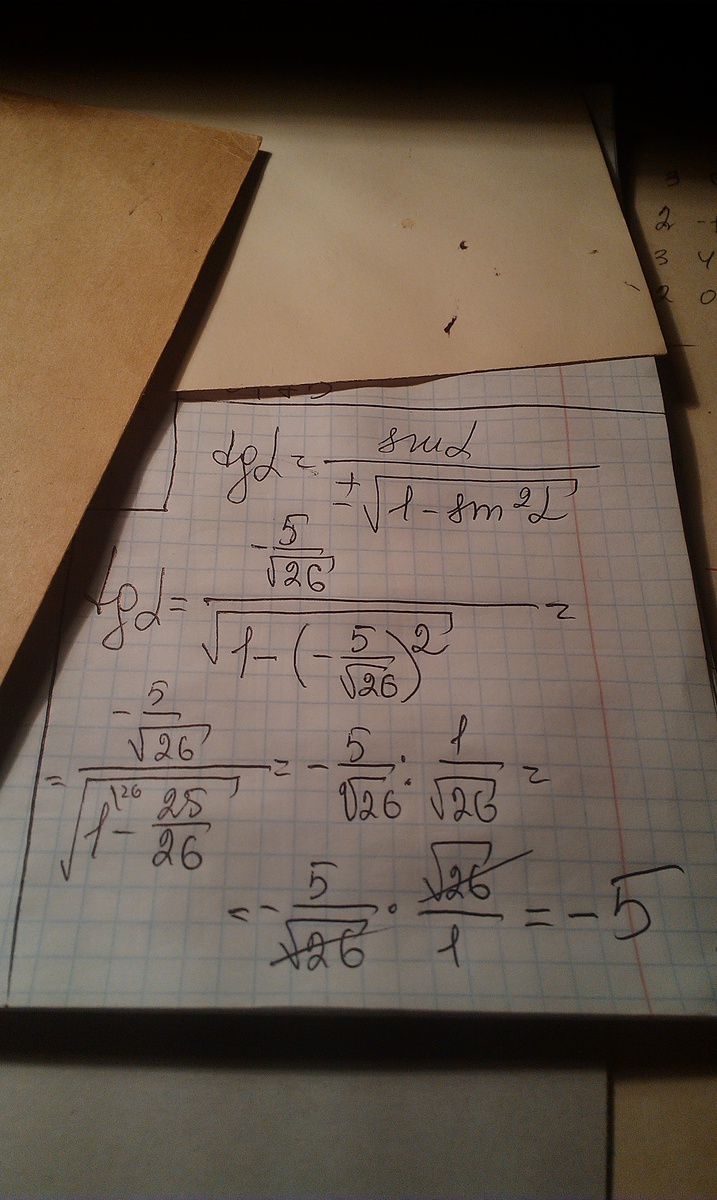 tgα = sinα / ±√(1 - sin²α)
tgα = (-5/√26) / √(1 - (-5/√26)²) =
= (-5/√26) / √(1\26 - 25/26) = -5/√26 : 1/√26 =
= -5/√26 · √26/1 = -5
3
2 -
3 4
2 0